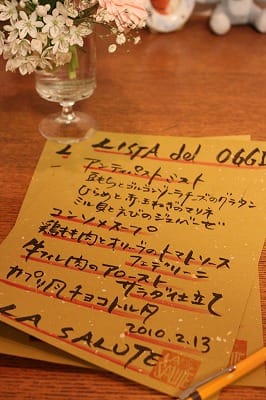 LISTA del OGGI
アンティパストミスト
豆もちとゴルゴンゾーラチーズのグラタン
ひらめと赤玉ねぎのマリネ
ミル貝とえびのジェノベーゼ
コンソメスープ
鶏もも肉とオリーブのトマトソース
フェデリーニ
牛フィレ肉のロースト
サラダ仕立て
カプリ風チョコトルタ
2010.2.13
LA SALUTE